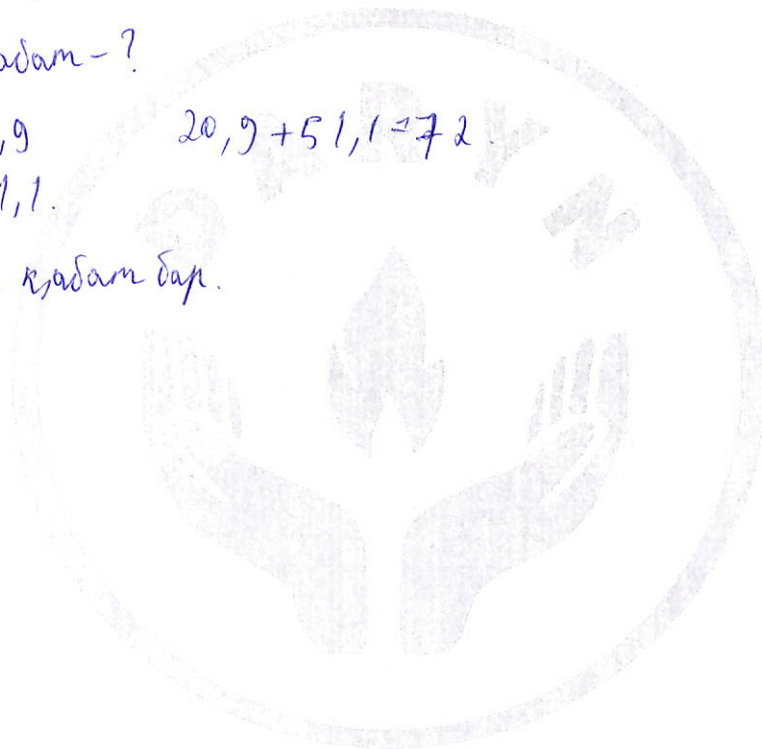 абат - ?
,9 20,9+51,1=72.
1,1.
қабат бар.
DARYN